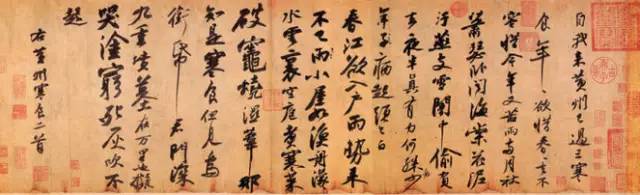 自我來黃州已過三寒
食年〻欲惜春春去不
容惜今年又苦雨兩月秋
蕭瑟臥聞海棠花泥
汙燕支雪闇中偷負
去夜半真有力何殊少
年子病起須已白
春江欲入戶雨勢來
不已雨小屋如漁舟濛〻
水雲裏空庖煮寒菜
破竈燒濕葦那
知是寒食但見烏
銜帋君門深
九重墳墓在万里也擬
哭塗窮死灰吹不
起
右黃州寒食二首